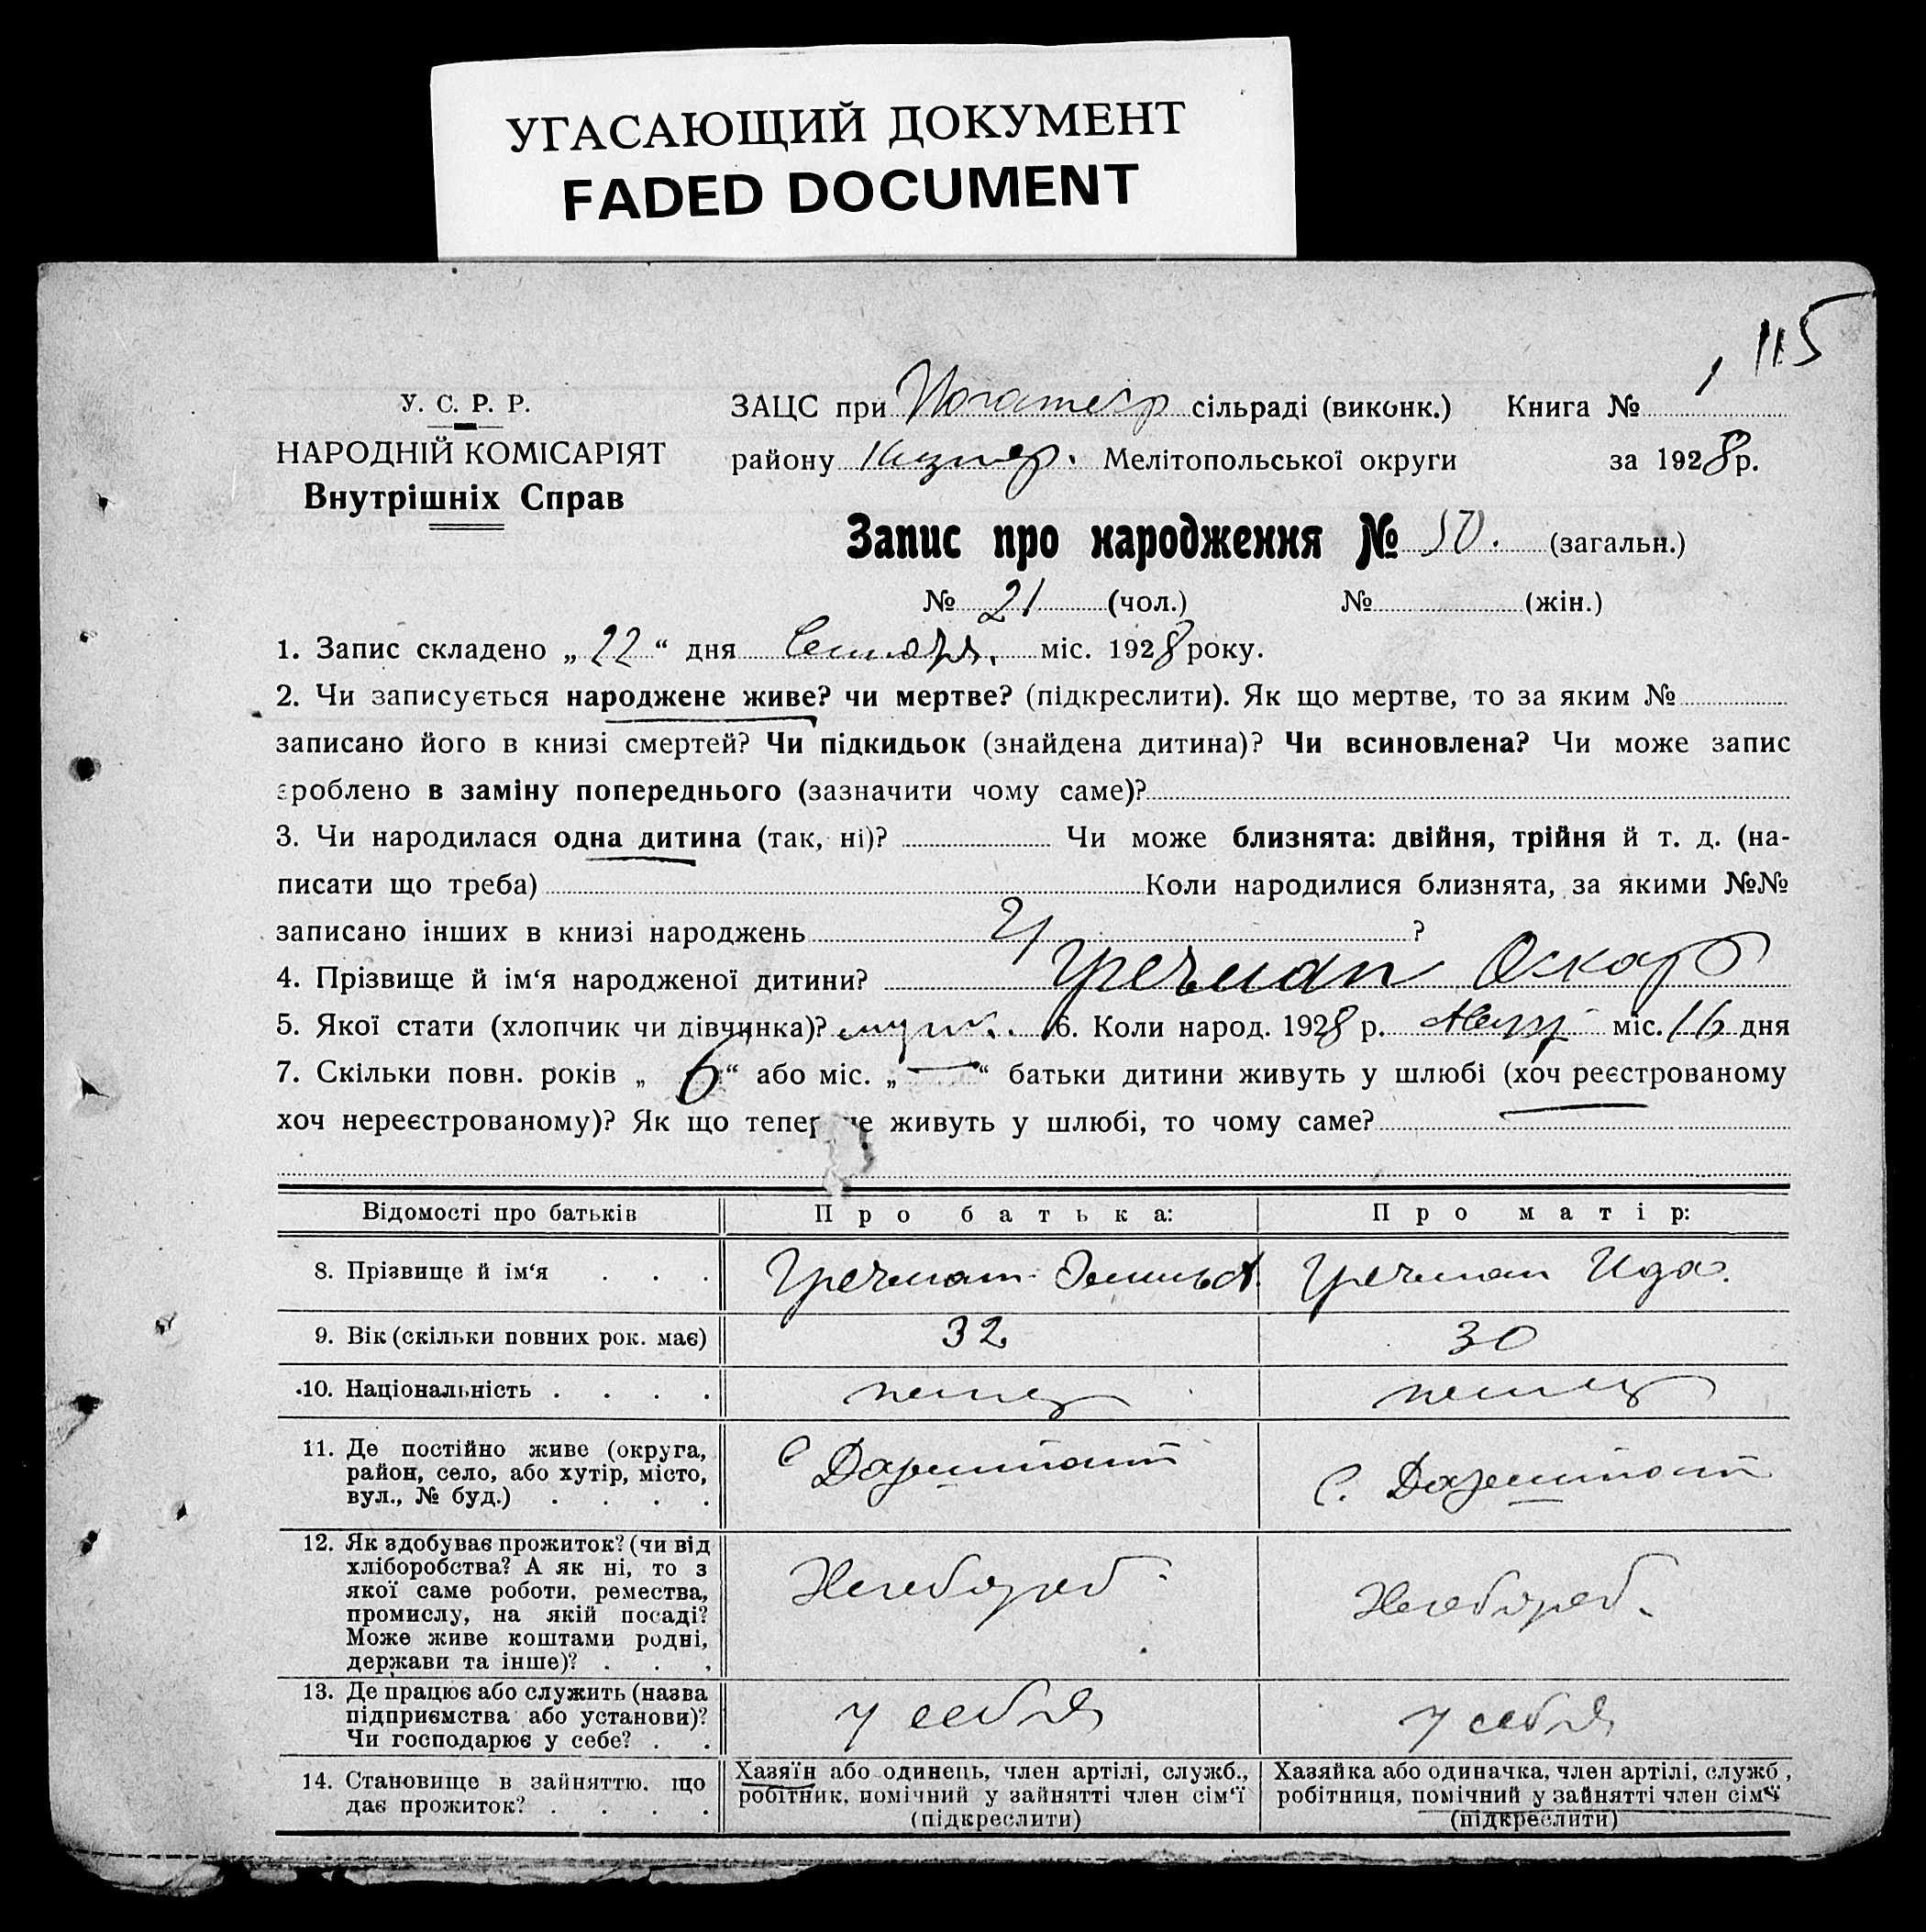 УГАСАЮЩИЙ ДОКУМЕНТ
FADED DOCUMENT
115
У. С. Р. Р.
НАРОДНІЙ КОМІСАРІЯТ
Внутрішніх Справ
ЗАЦС при сільраді (виконк.) Книга № 1
району Мелітопольської округи за 1928 р.
Запис про народження № 50. (загальн.)
№ 21 (чол.) № (жін.)
1. Запис складено „ 22 “ дня Сентября. міс. 1928 року.
2. Чи записується народжене живе? чи мертве? (підкреслити). Як що мертве, то за яким №
записано його в книзі смертей? Чи підкидьок (знайдена дитина)? Чи всиновлена? Чи може запис
зроблено в заміну попереднього (зазначити чому саме)?
3. Чи народилася одна дитина (так, ні)? Чи може близнята: двійня, трійня й т. д. (на-
писати що треба) Коли народилися близнята, за якими №№
записано інших в книзі народжень ?
4. Прізвище й ім‘я народженої дитини? Гречман Оскар
5. Якої стати (хлопчик чи дівчинка)? муж. 6. Коли народ. 1928 р. міс. 16 дня
7. Скільки повн. років „ 6 “ або міс. „ — “ батьки дитини живуть у шлюбі (хоч реєстрованому
хоч нереєстрованому)? Як що тепер не живуть у шлюбі, то чому саме?
Відомості про батьків Про батька: Про матір:
8. Прізвище й ім‘я . . . Гречман Эмильд. Гречман Ида.
9. Вік (скільки повних рок. має) 32 30
10. Національність . . . . немец немец
11. Де постійно живе (округа,
район, село, або хутір, місто,
вул., № буд.) . . . .
С Дармштат С. Дармштат
12. Як здобуває прожиток? (чи від
хліборобства? А як ні, то з
якої саме роботи, ремества,
промислу, на якій посаді?
Може живе коштами родні,
держави та інше)? . . .
Хлебороб Хлебороб.
13. Де працює або служить (назва
підприємства або установи)?
Чи господарює у себе? . .
у себя у себя
14. Становище в зайняттю, що
дає прожиток? . . . .
Хазяїн або одинець, член артілі, служб.,
робітник, помічний у зайнятті член сім‘ї
(підкреслити)
Хазяйка або одиначка, член артілі, служб.,
робітниця, помічний у зайнятті член сім‘ї
(підкреслити)